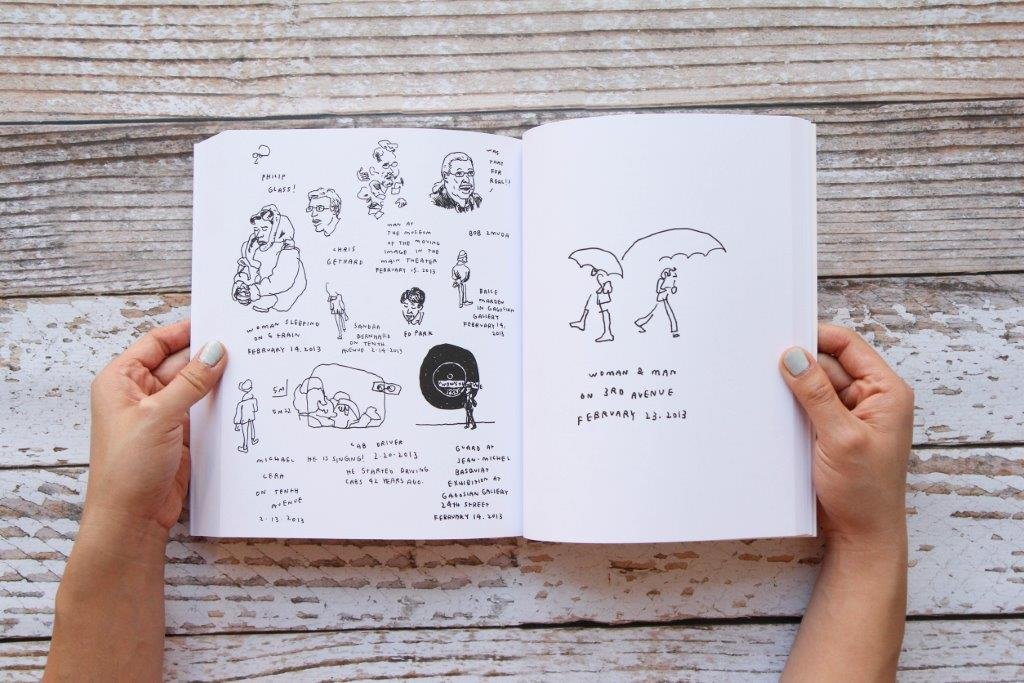 PHILIP
GLASS!
WAS
THAT
FOR
REAL!?
CHRIS
GETHARD
MAN AT
THE MUSEUM
OF THE MOVING
IMAGE IN THE
MAIN THEATER
FEBRUARY 15. 2013
BOB ZMUDA
WOMAN SLEEPING
ON G TRAIN
FEBRUARY 14. 2013
SANDRA
BERNHARD
ON TENTH
AVENUE 2-14-2013
ED PARK
BRICE
MARDEN
IN GAGOSIAN
GALLERY
FEBRUARY 14,
2013
MICHAEL
CERA
ON TENTH
AVENUE
2-13-2013
CAB DRIVER
HE IS SINGING! 2-20-2013
HE STARTED DRIVING
CABS 42 YEARS AGO.
GUARD AT
JEAN-MICHEL
BASQUIAT
EXHIBITION AT
GAGOSIAN GALLERY
24TH STREET
FEBRUARY 14. 2013
WOMAN & MAN
ON 3RD AVENUE
FEBRUARY 23. 2013